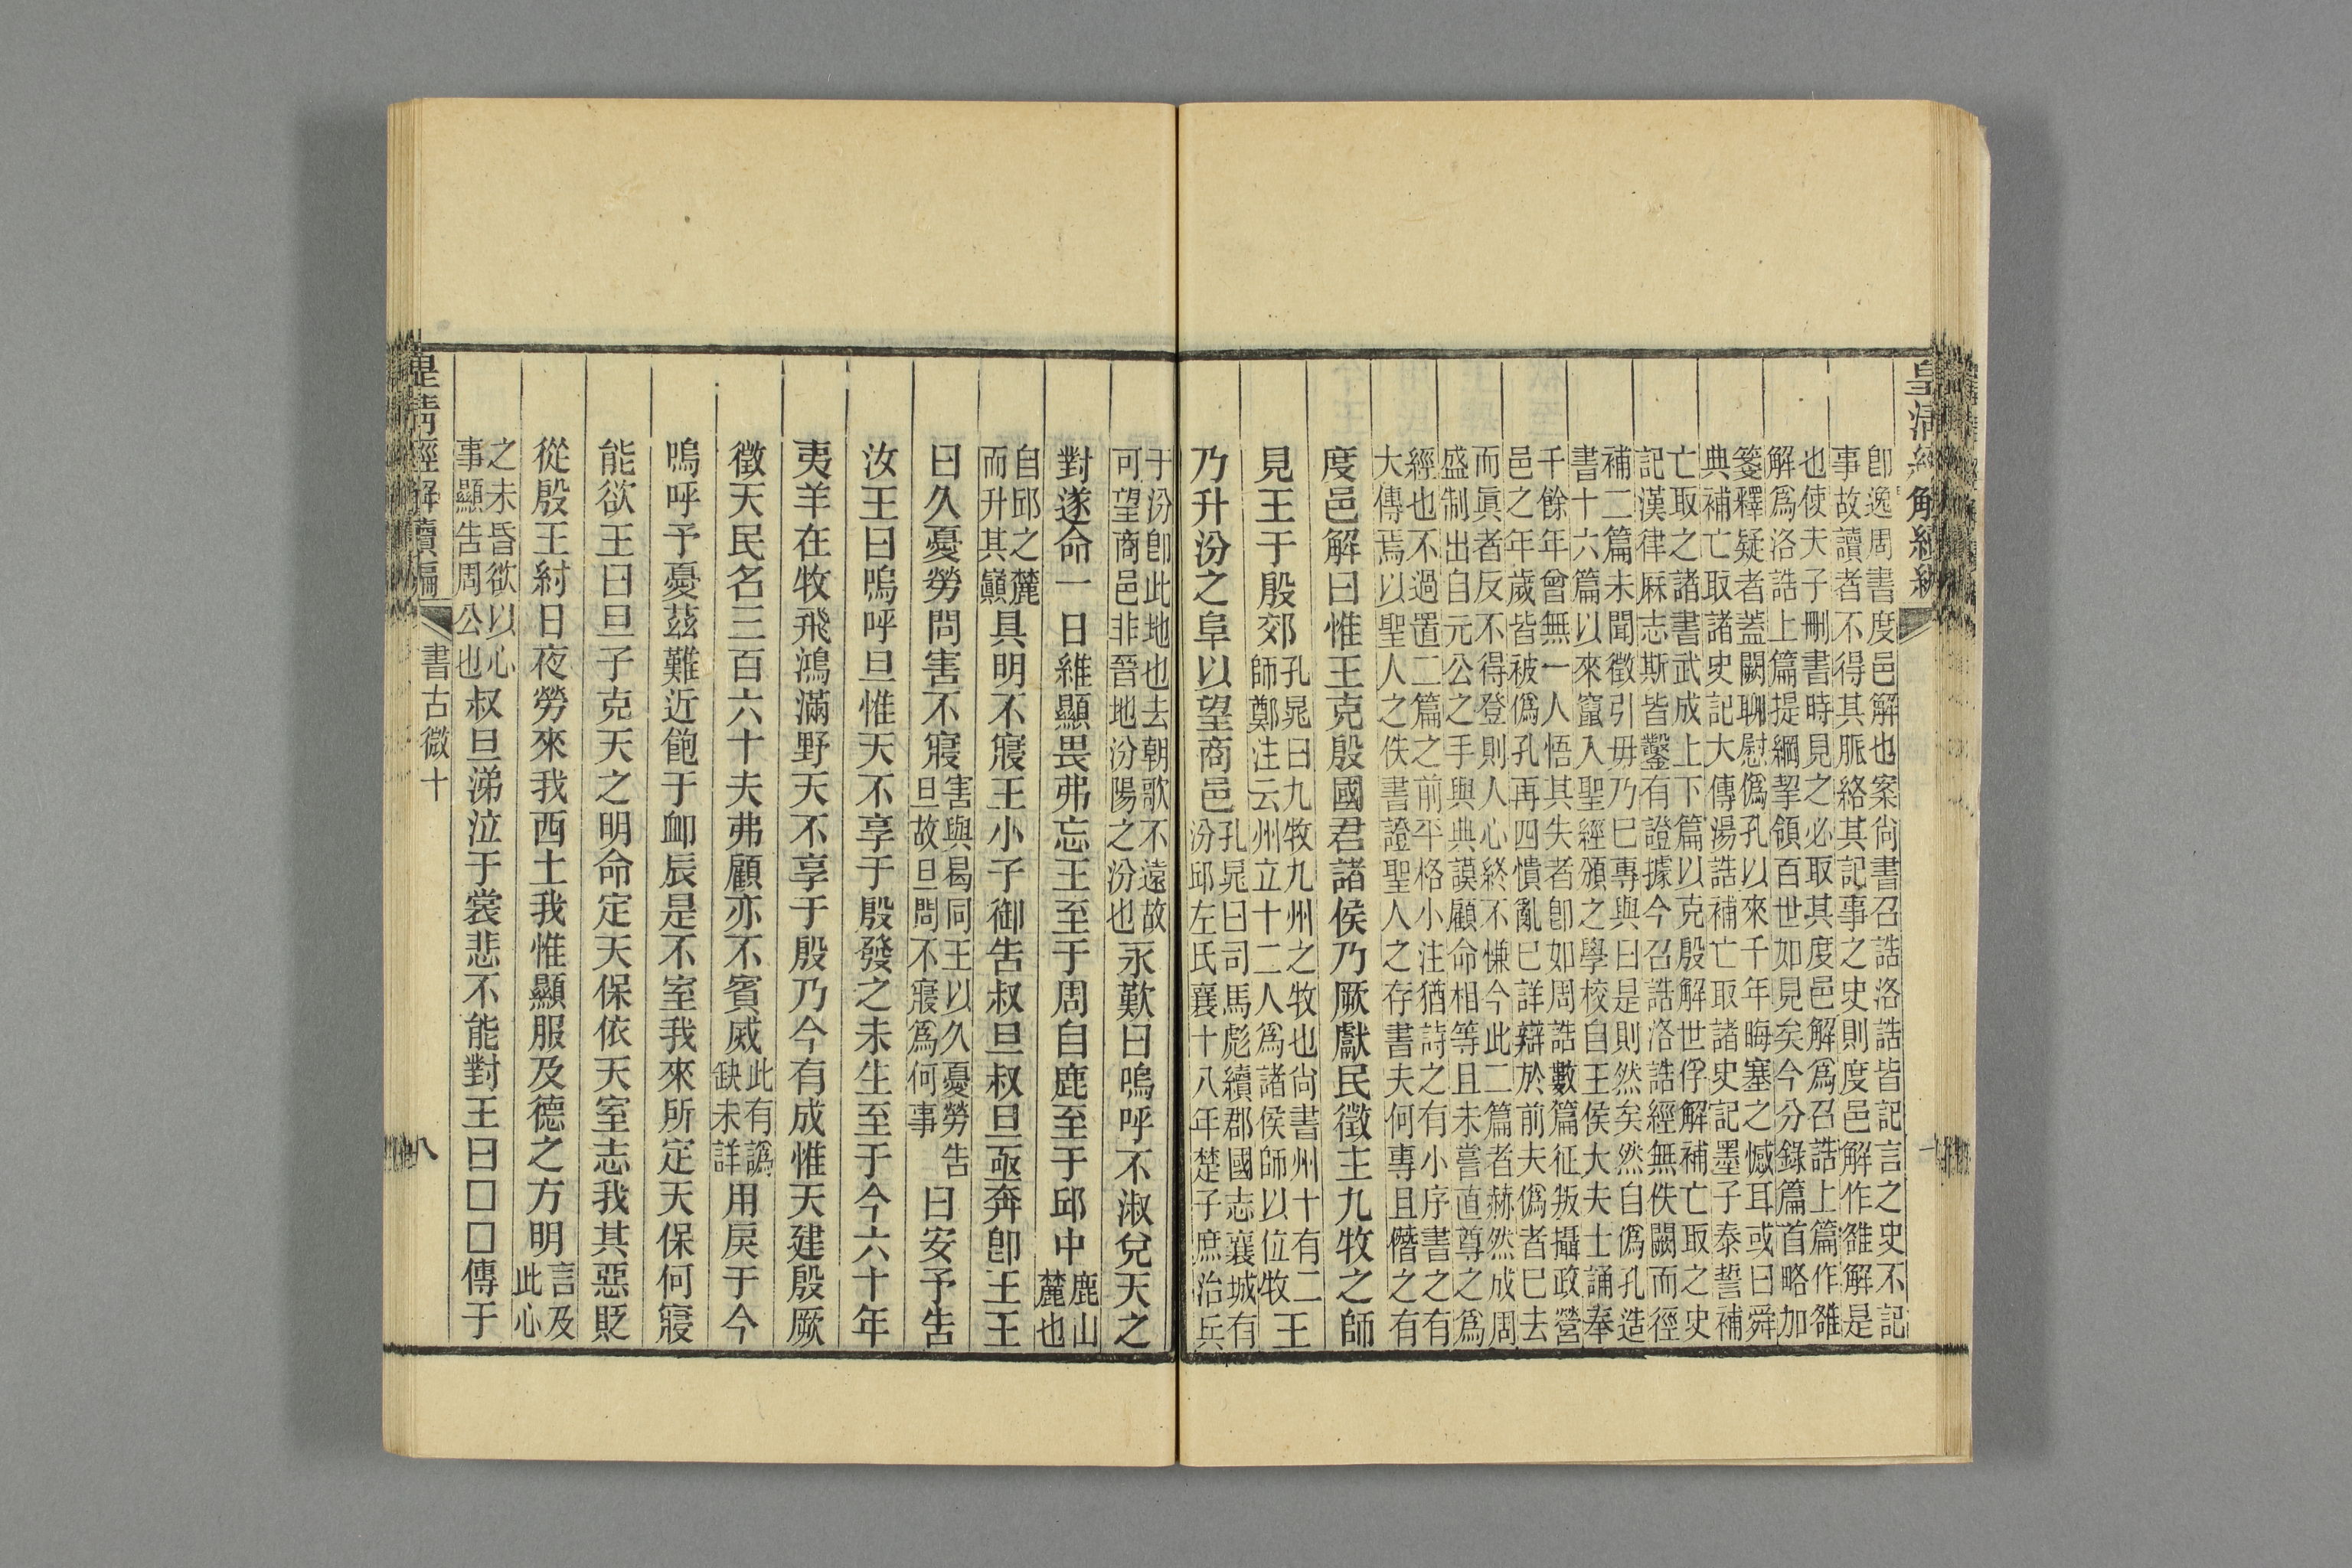 皇清經解續編
即逸周書度邑解也案尚書召誥洛誥皆記言之史不記
事故讀者不得其脈絡其記事之史則度邑解作雒解是
也使夫子刪書時見之必取其度邑解爲召誥上篇作雒
解爲洛誥上篇提綱挈領百世如見矣今分錄篇首略加
箋釋疑者蓋闕聊慰僞孔以來千年晦塞之憾耳或曰舜
典補亡取諸史記大傳湯誥補亡取諸史記墨子泰誓補
亡取之諸書武成上下篇以克殷解世俘解補亡取之史
記漢律厤志斯皆鑿有證據今召誥洛誥經無佚闕而徑
補二篇未聞徵引毋乃巳專與曰是則然矣然自僞孔造
書十六篇以來竄入聖經頒之學校自王侯大夫士誦奉
千餘年曾無一人悟其失者即如周誥數篇征叛攝政營
邑之年歲皆被僞孔再四憒亂巳詳辯於前夫僞者巳去
而眞者反不得登則人心終不慊今此二篇者赫然成周
盛制出自元公之手與典謨顧命相等且未嘗直尊之爲
經也不過置二篇之前平格小注猶詩之有小序書之有
大傳焉以聖人之佚書證聖人之存書夫何專且僭之有
度邑解曰惟王克殷國君諸侯乃厥獻民徵主九牧之師
見王于殷郊孔晁曰九牧九州之牧也尚書州十有二師鄭注云州立十二人爲諸侯師以位牧王
乃升汾之阜以望商邑孔晁曰司馬彪續郡國志襄城有汾邱左氏襄十八年楚子庶治兵
于汾即此地也去朝歌不遠故可望商邑非晉地汾陽之汾也永歎曰嗚呼不淑兌天之
對遂命一日維顯畏弗忘王至于周自鹿至于邱中鹿山麓也
自邱之麓而升其巔具明不寢王小子御告叔旦叔旦亟奔即王王
曰久憂勞問害不寢害與曷同王以久憂勞告旦故旦問不寢爲何事曰安予告
汝王曰嗚呼旦惟天不享于殷發之未生至于今六十年
夷羊在牧飛鴻滿野天不享于殷乃今有成惟天建殷厥
徵天民名三百六十夫弗顧亦不賓威此有譌缺未詳用戾于今
嗚呼予憂茲難近飽于卹辰是不室我來所定天保何寢
能欲王曰旦予克天之明命定天保依天室志我其惡貶
從殷王紂日夜勞來我西土我惟顯服及德之方明言及此心
之未昏欲以心事顯告周公也叔旦涕泣于裳悲不能對王曰□□傳于
皇清經解續編
書古微十
八